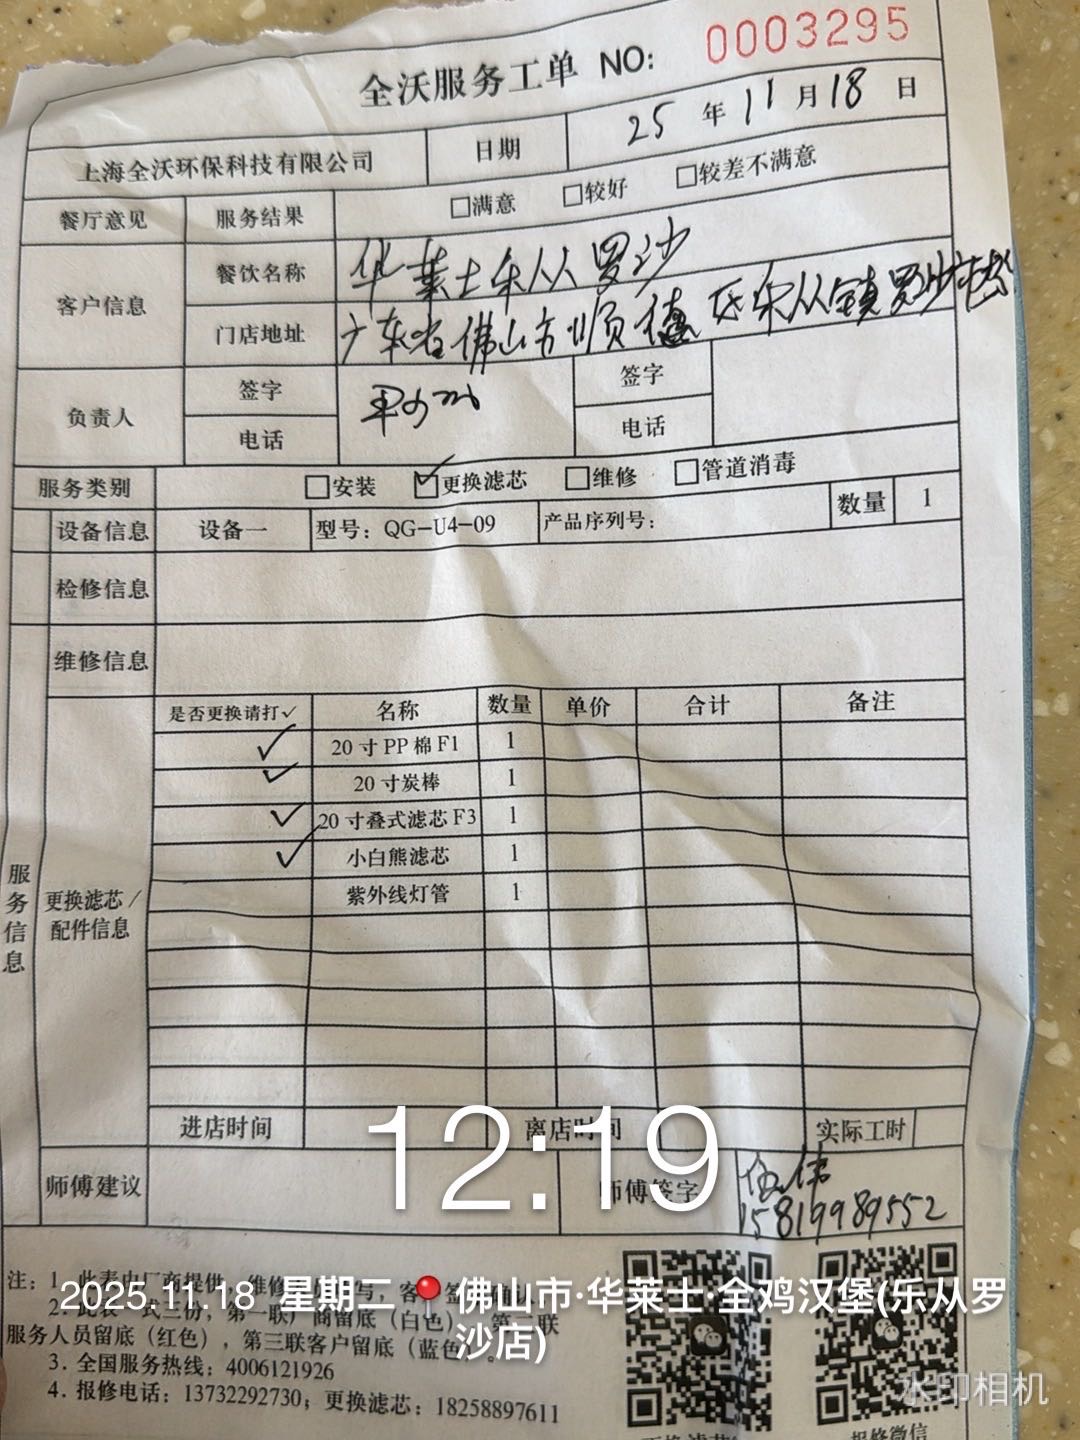 全沃服务工单 NO: 0003295
上海全沃环保科技有限公司 日期 25 年 11 月 18 日
餐厅意见 服务结果 □满意 □较好 □较差不满意
客户信息 餐饮名称 华莱士乐从罗沙
门店地址 广东省佛山市顺德区乐从镇罗沙
负责人 签字 签字
电话 电话
服务类别 □安装 ☑更换滤芯 □维修 □管道消毒
设备信息 设备一 型号：QG-U4-09 产品序列号： 数量 1
检修信息
维修信息
服务信息
更换滤芯/配件信息
是否更换请打✓ 名称 数量 单价 合计 备注
✓ 20寸PP棉F1 1
✓ 20寸炭棒 1
✓ 20寸叠式滤芯F3 1
✓ 小白熊滤芯 1
紫外线灯管 1
进店时间 离店时间 实际工时
12:19
师傅建议 师傅签字 伍伟
15819989552
注：1. 此表由厂商提供，维修
2025.11.18 星期二 佛山市·华莱士·全鸡汉堡(乐从罗沙店)
2. 此表一式三份，第一联厂商留底（白色），第二联
服务人员留底（红色），第三联客户留底（蓝色）。
3. 全国服务热线：4006121926
4. 报修电话：13732292730；更换滤芯：18258897611
水印相机
报修微信